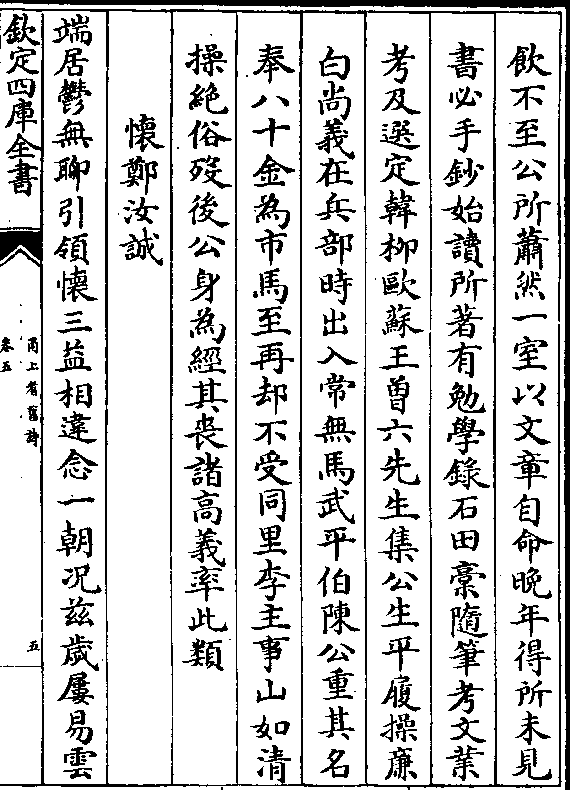 飲不至公所蕭然一室以文章自命晚年得所未見
書必手鈔始讀所著有勉學錄石田稾隨筆考文葉
考及選定韓柳歐蘇王曽六先生集公生平履操廉
白尚義在兵部時出入常無馬武平伯陳公重其名
奉八十金為市馬至再却不受同里李主事山如清
操絶俗歿後公身為經其喪諸高義率此類
懷鄭汝誠
端居鬱無聊引領懷三益相違念一朝况兹歳屢易雲
欽定四庫全書
甬上耆舊詩
卷五
五